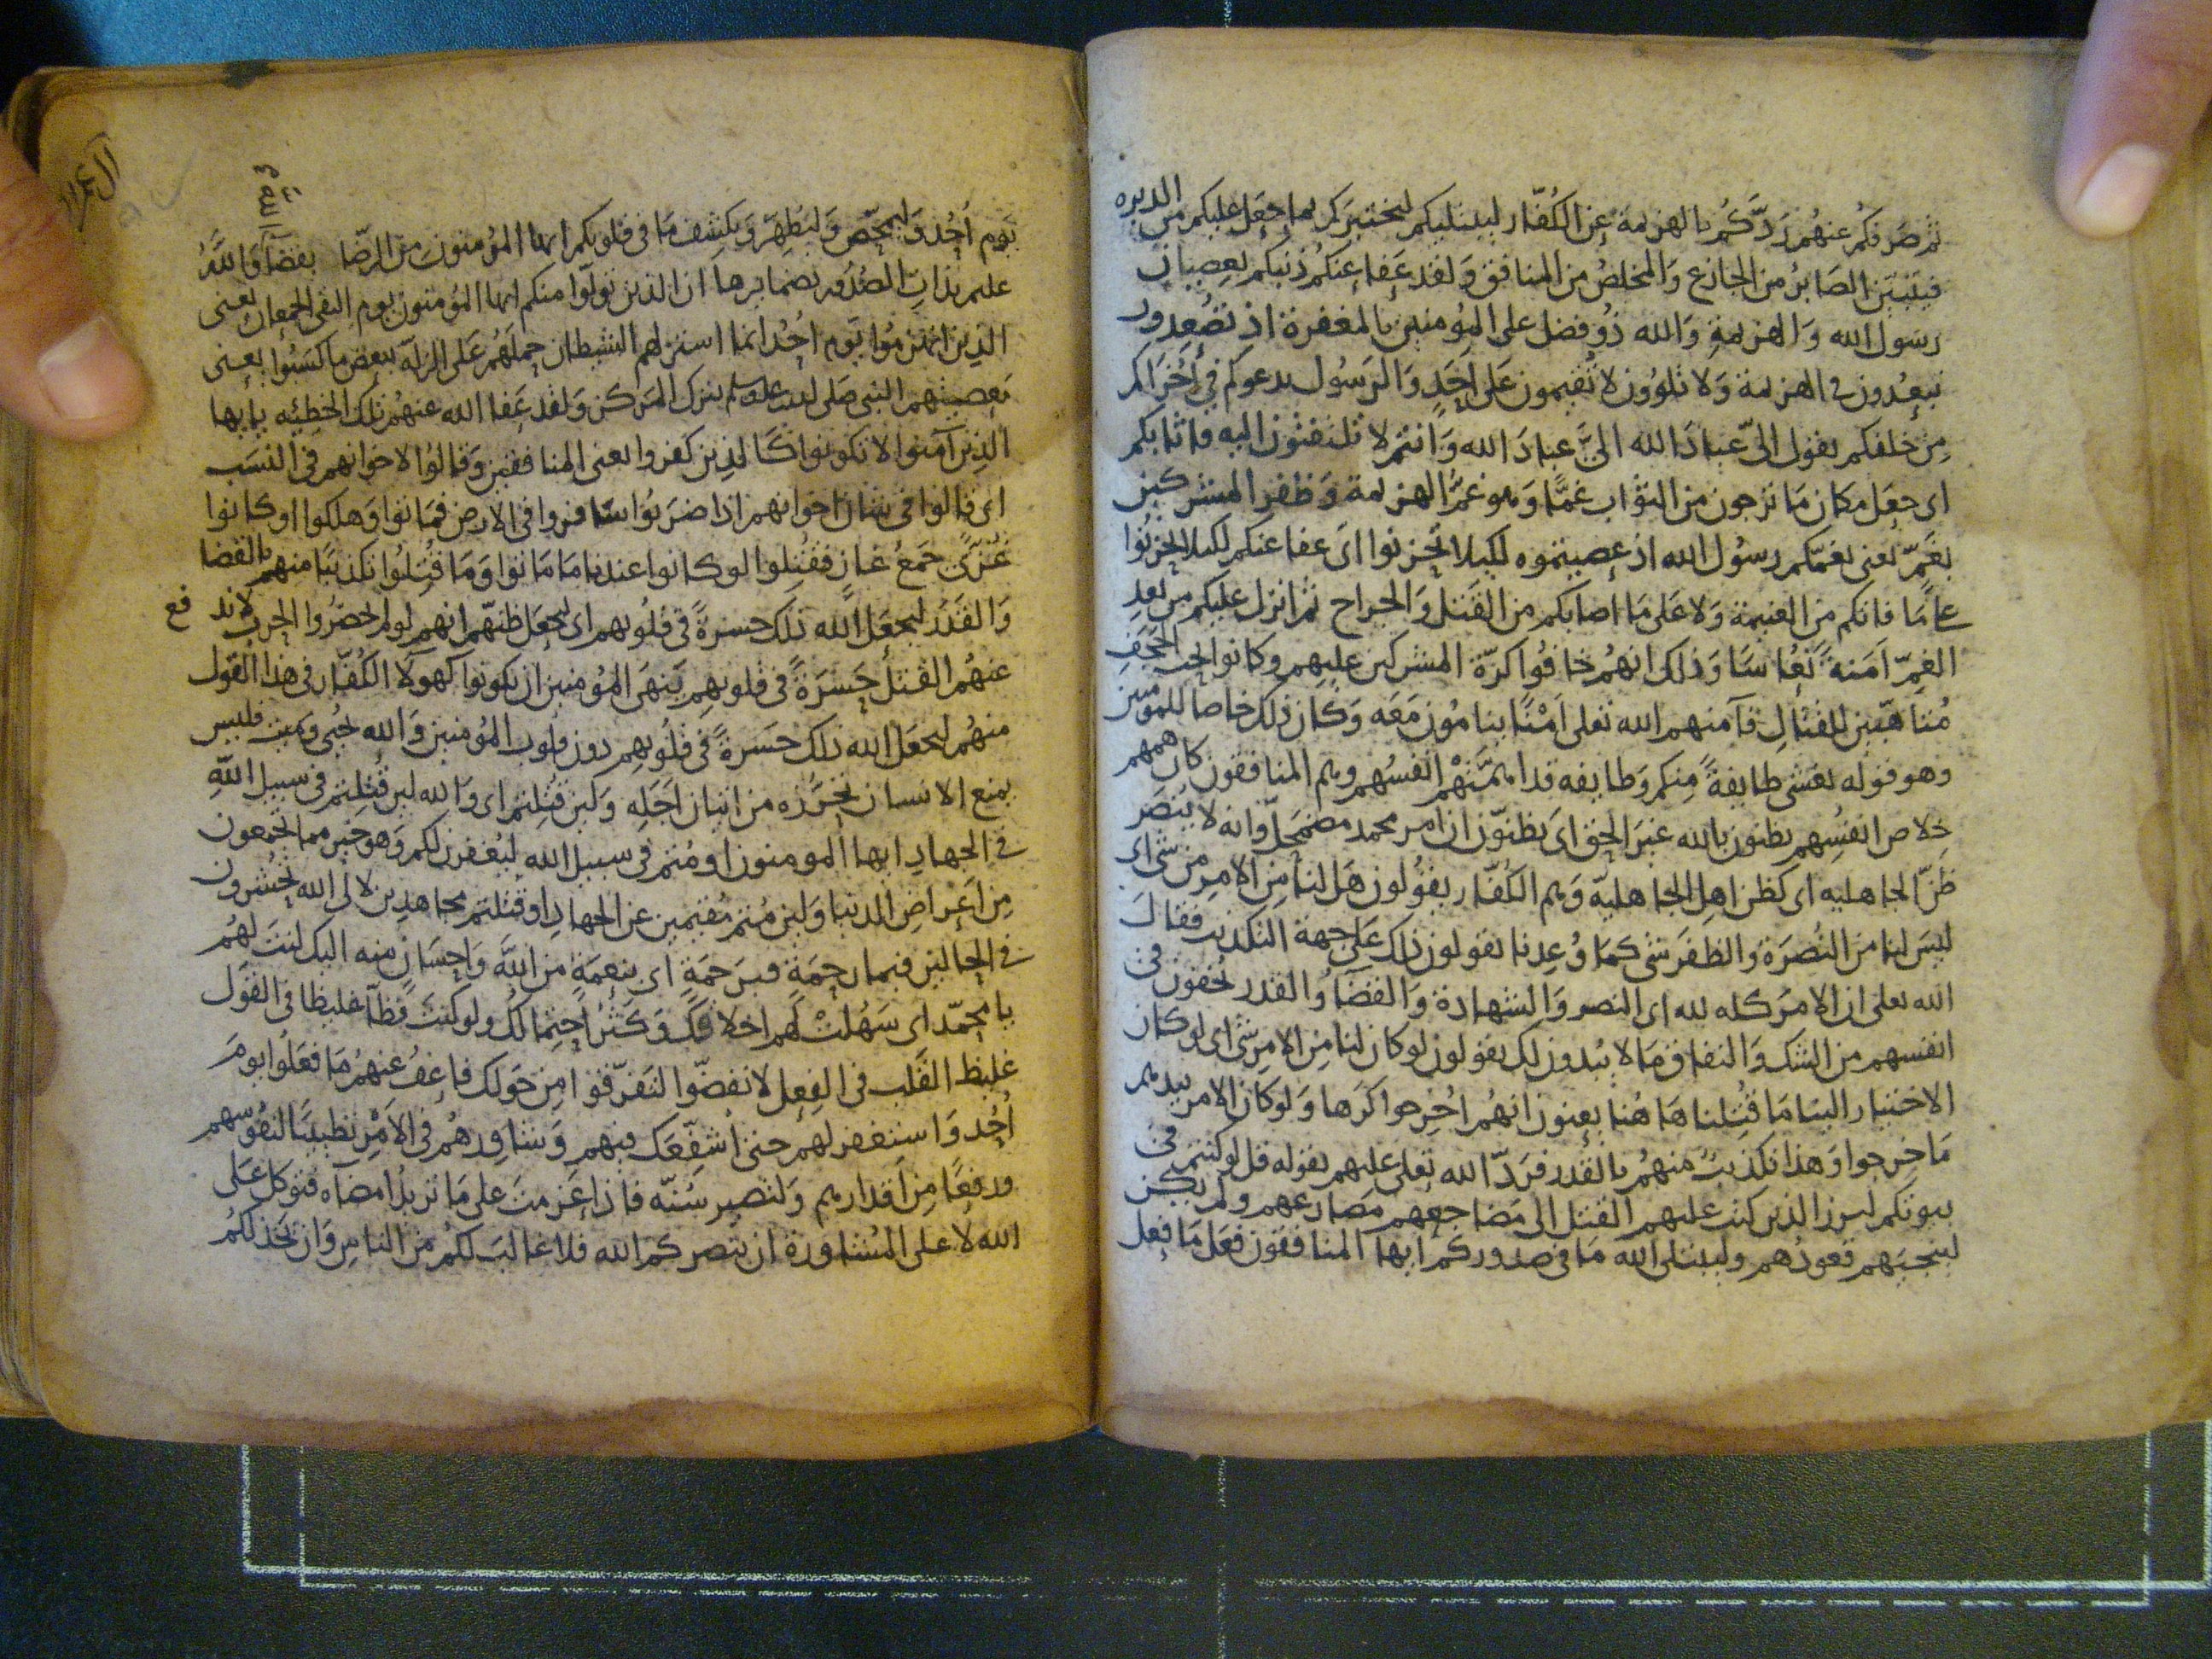 ثم صرفكم عنهم ردَّكُم بالهزيمة عن الكفّار ليبتليكم ليختبركم بما جعل عليكم من الدبره
فيتبيّن الصابر من الجازع والمخلص من المنافق ولقد عفا عنكم ذنبكم بعصيان
رسول الله والهزيمة والله ذو فضل على المؤمنين بالمغفرة اذ تصعدون
تبعدون في الهزيمة ولا تلوون لا تقيمون على احد والرسول يدعوكم في أخراكم
من خلفكم يقول اليّ عباد الله اليّ عباد الله وانتم لا تلتفتون اليه فاثابكم
اى جعل مكان ما ترجون من الثواب غمًّا وهو غمّ الهزيمة وظفر المشركين
بغمّ يعنى بغمّكم رسول الله اذ عصيتموه لكيلا تحزنوا اى عفا عنكم لكيلا تحزنوا
على ما فاتكم من الغنيمة ولا على ما اصابكم من القتل والجراح ثم انزل عليكم من بعد
الغمّ أمنة نعاسا وذلك انهم خافوا كرّة المشركين عليهم وكانوا تحت الحجف
متأهبين للقتال فآمنهم الله تعلى أمنًا ينامون معه وكان ذلك خاصا للمؤمنين
وهو قوله يغشى طايفةً منكم وطايفه قد اهمّتهم انفسهم وهم المنافقون كان همهم
خلاص انفسهم يظنون بالله غير الحق اى يظنون ان امر محمد مضمحلّ وانه لا ينصر
ظنّ الجاهليه اى كظن اهل الجاهليّة وهم الكفّار يقولون هل لنا من الامر من شى اى
ليس لنا من النصرة والظفر شى كما وُعِدنا يقولون ذلك على جهة التكذيب فقال
الله تعلى ان الامر كله لله اى النصر والشهادة والقضا والقدر يخفون فى
انفسهم من الشك والنفاق ما لا يبدون لك يقولون لو كان لنا من الامر شى اى لو كان
الاختيار الينا ما قُتِلنا هاهنا يعنون انهم اُخرجوا كرها ولو كان الامر بيدهم
ما خرجوا وهذا تكذيبٌ منهم بالقدر فردّ الله تعلى عليهم بقوله قل لو كنتم فى
بيوتكم لبرز الذين كتب عليهم القتل الى مضاجعهم مصارعهم ولم يكن
لينجيهم قعودهم وليبتلى الله ما فى صدوركم ايها المنافقون فعل ما فعل
ال عمران
يوم أُحُد وليمحّص وليطهّر ويكشف ما فى قلوبكم ايها المؤمنون من الرضا بقضآ والله
عليم بذات الصدور بضمايرها ان الذين تولّوا منكم ايها المؤمنون يوم التقى الجمعان يعنى
الذين انهزموا يوم أُحُد انما استزلهم الشيطان حملهم على الزلّة ببعض ما كسبوا يعنى
بعصيتهم النبى صلى الله عليه وسلم بترك المركز ولقد عفا الله عنهم تلك الخطيّه يايها
الذين آمنوا لا تكونوا كالذين كفروا يعنى المنافقين وقالوا لاخوانهم فى النسب
اى قالوا فى شان اخوانهم اذا ضربوا سافروا فى الارض فماتوا وهلكوا او كانوا
غُزّىً جمع غازٍ فقتلوا لو كانوا عندنا ما ماتوا وما قتلوا تكذيبًا منهم بالقضا
والقدر ليجعل الله ذلك حسرةً فى قلوبهم اى ليجعل ظنّهم انهم لو لم يحضروا الحرب لاندفع
عنهم القتل حسرةً فى قلوبهم ينهى المؤمنين ان يكونوا كهولا الكفّار فى هذا القول
منهم ليجعل الله ذلك حسرةً فى قلوبهم دون قلوب المؤمنين والله يُحيى ويميت فليس
يمنع الانسان تحرّزه من اتيان اجله ولئن قُتِلتم اى والله لين قُتِلتم فى سبيل الله
فى الجهاد ايها المومنون او مُتم فى سبيل الله ليُغفرن لكم وهو خير مما تجمعون
من اعراض الدنيا ولين مُتم مقيمين عن الجهاد او قُتلتم مجاهدين لالى الله تُحشرون
فى الحالين فبما رحمة فبرحمة اى بنعمة من الله واحسان منه اليك لنت لهم
يا محمّد اى سهلت لهم اخلاقك وكثر احتمالك ولو كنت فظّا غليظا فى القول
غليظ القلب فى الفعل لانفضّوا لتفرّقوا من حولك فاعفُ عنهم ما فعلوا يوم
أُحُد واستغفر لهم حتى أشفعك فيهم وشاورهم فى الامر تطييبًا لنفوسهم
ورفعًا من اقدارهم ولتصير سُنّه فاذا عزمت على ما تريد امضاه فتوكل على
الله لا على المشاورة ان ينصركم الله فلا غالب لكم من الناس وان يخذلكم